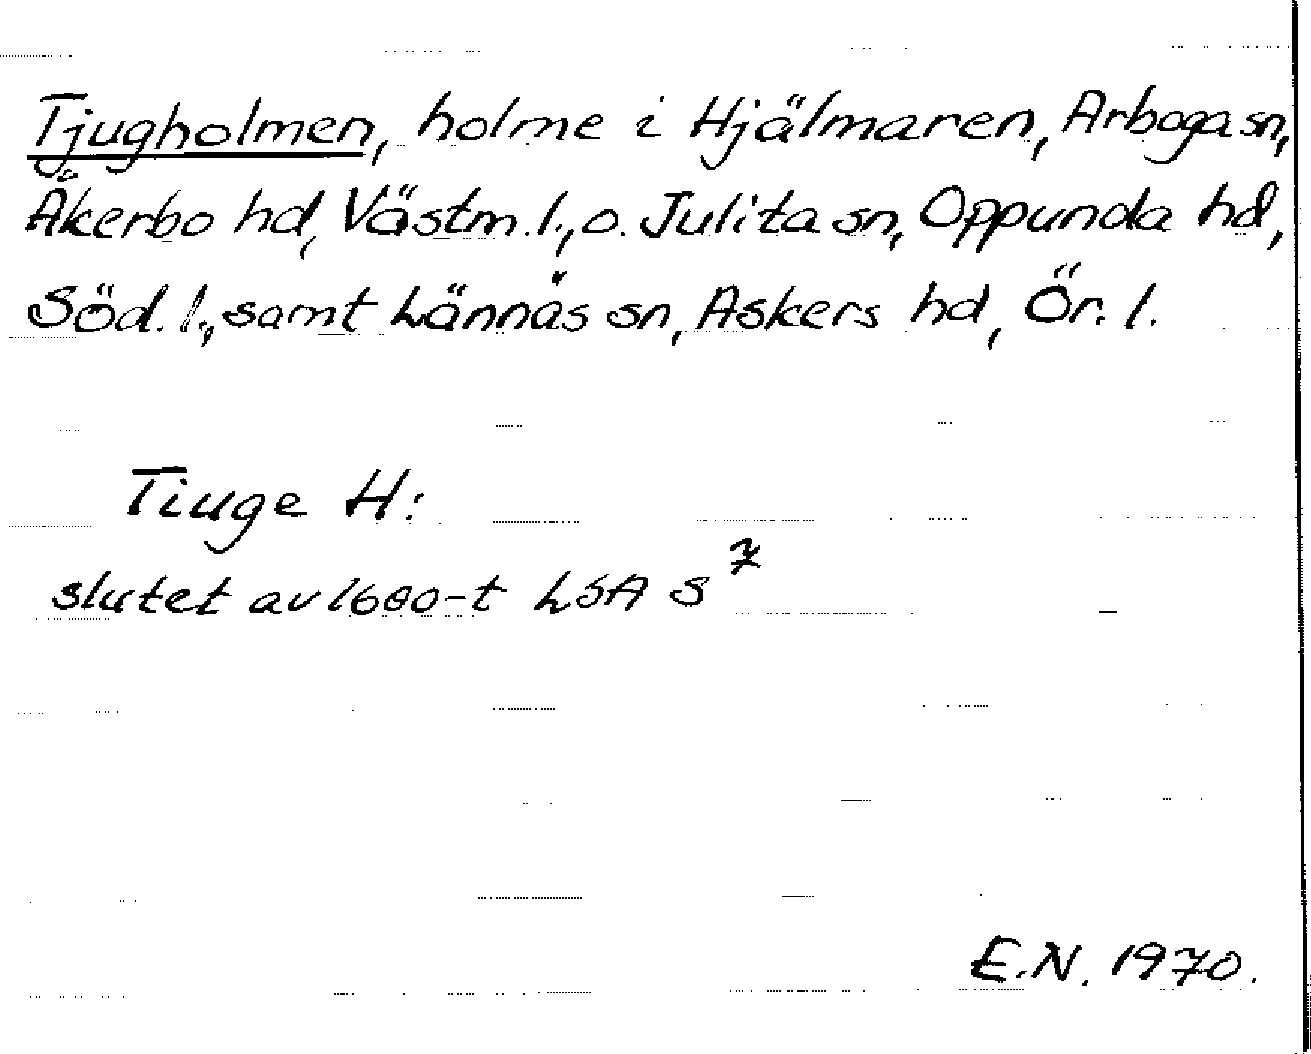 Tjugholmen, holme i Hjälmaren, Arboga sn,
Åkerbo hd, Västm. l., o. Julita sn, Oppunda hd,
Söd. l., samt Lännäs sn, Askers hd, Ör. l.
Tiuge H:
slutet av 1600-t LSA S 7
E.N. 1970.